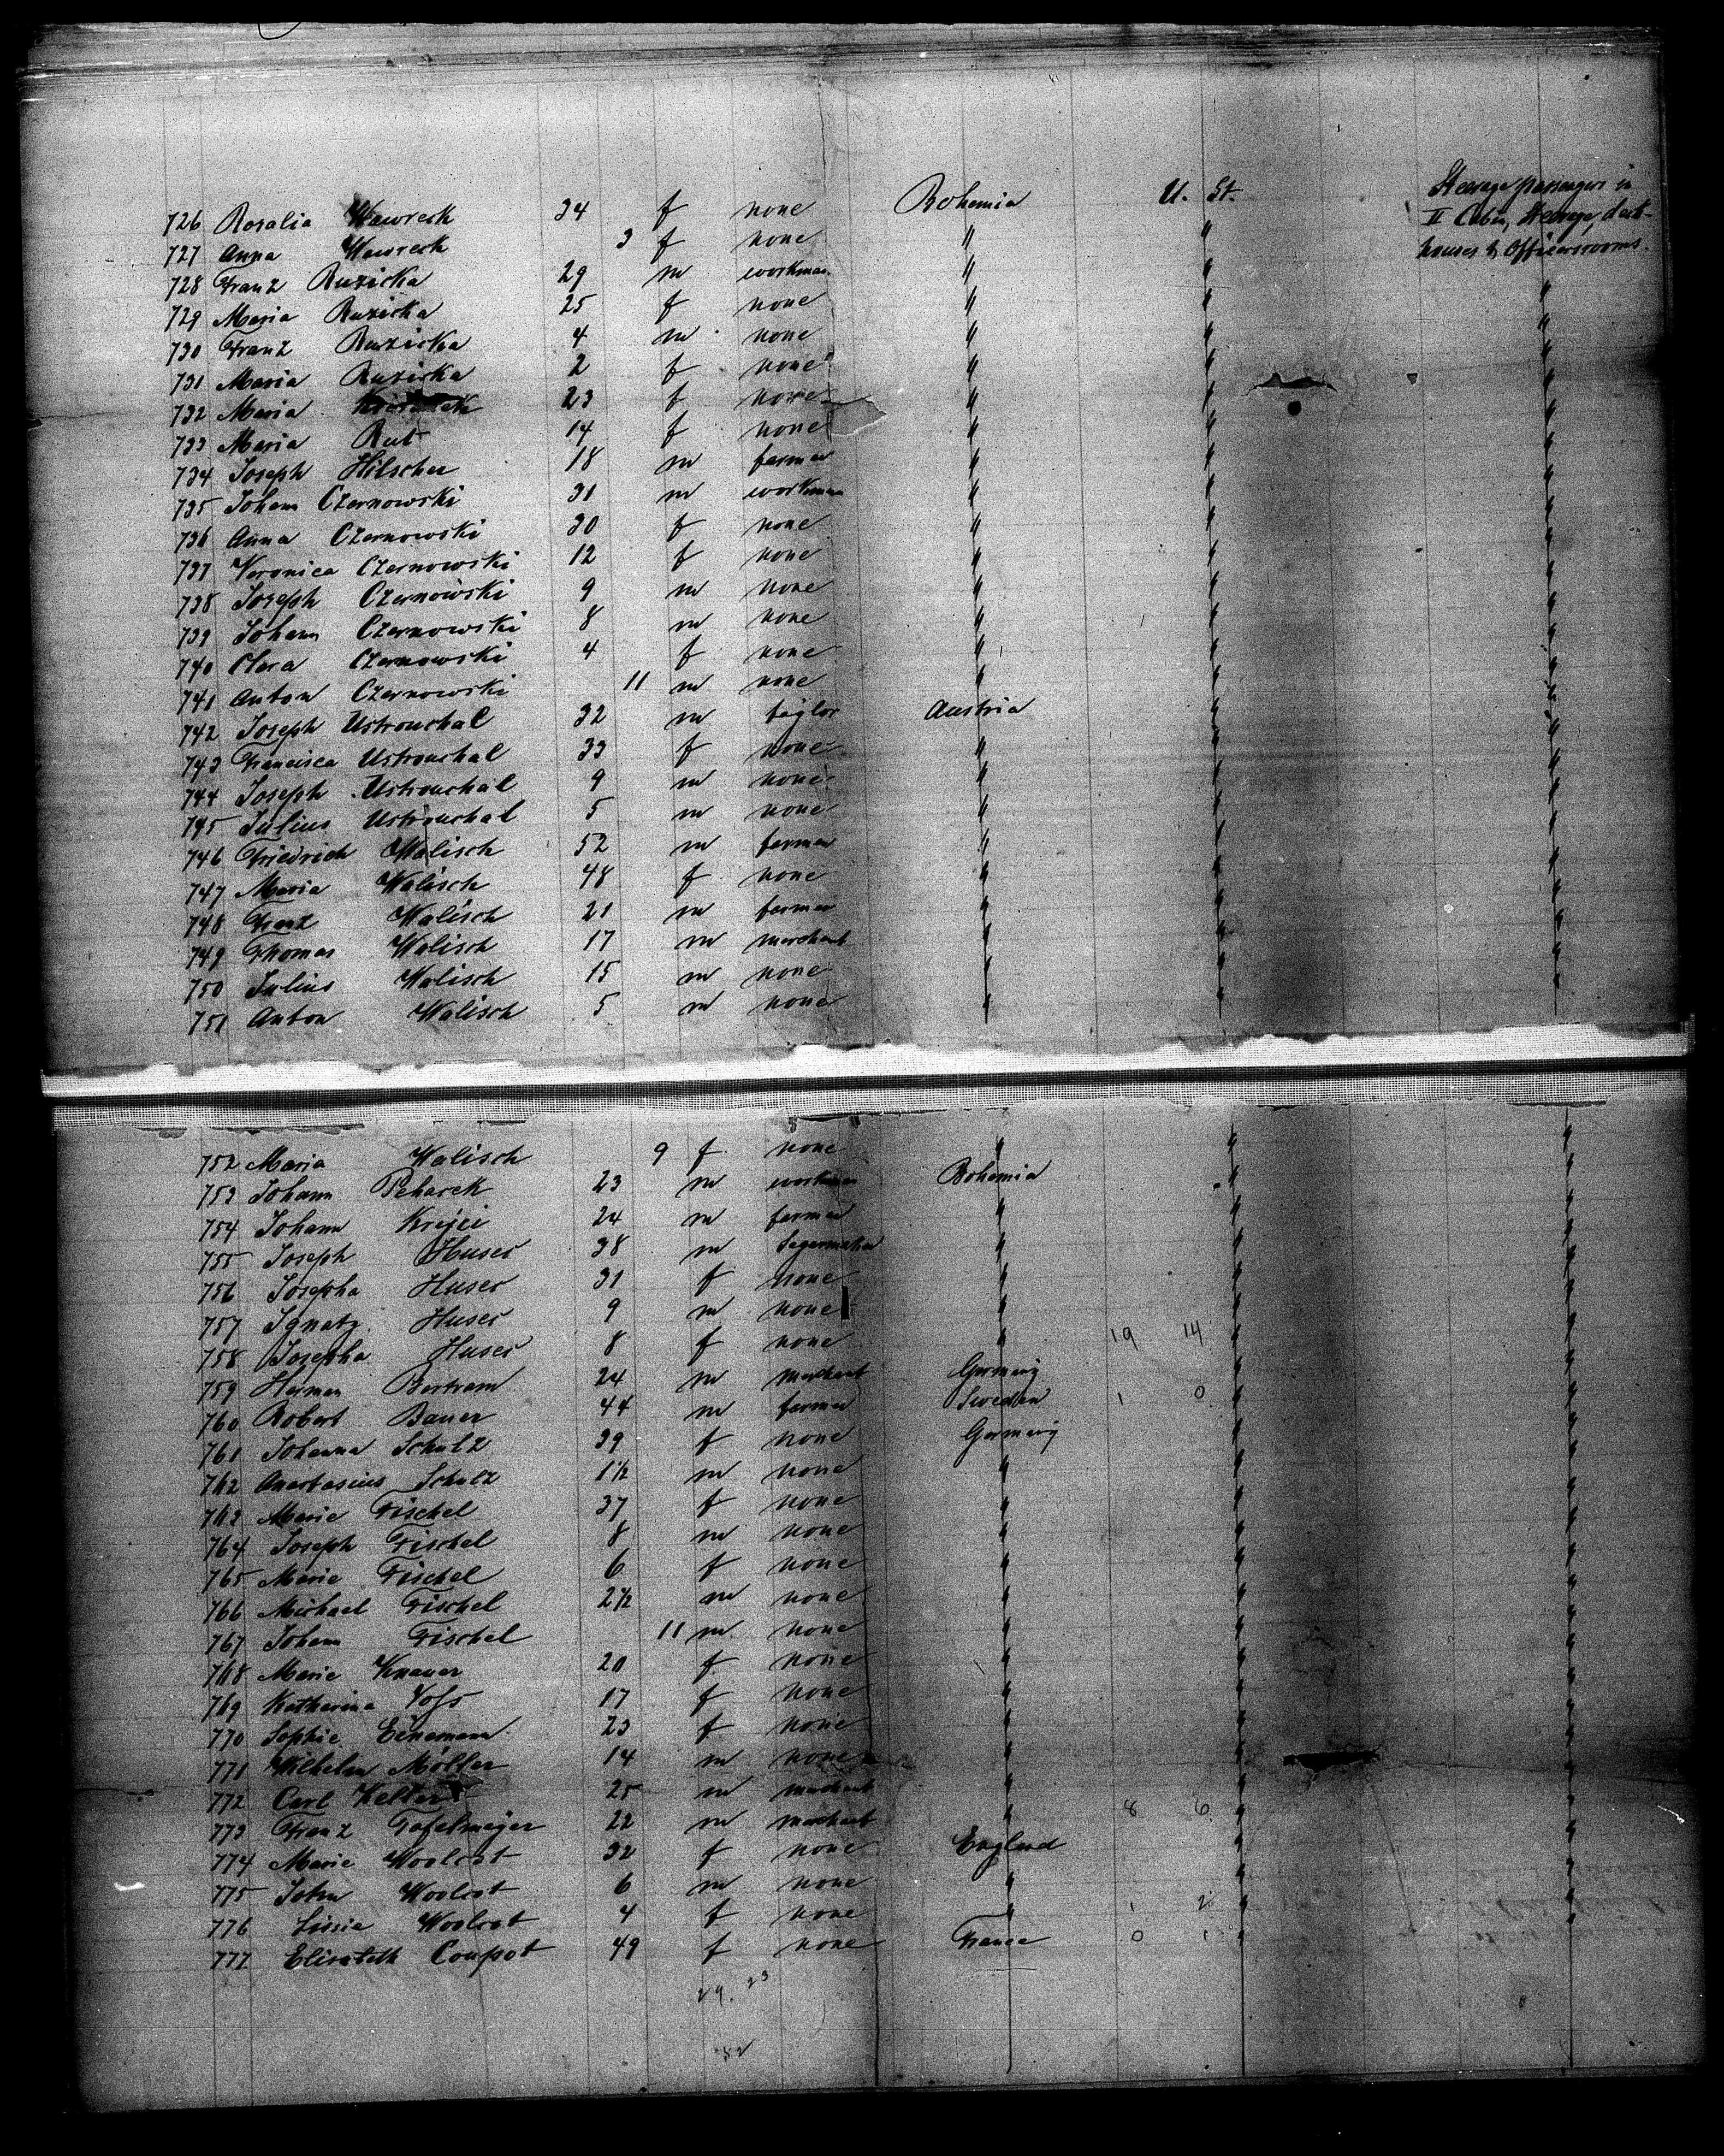 Steerage passengers in
II Cabin, Steerage, deck-
houses & Officersrooms.
726 Rosalia Wawreck 34 f none Bohemia U. St.
727 Anna Wawreck 3 f none " "
728 Franz Ruzicka 29 m workman " "
729 Maria Ruzicka 25 f none " " "
730 Franz Ruzicka 4 m none " " "
731 Maria Ruzicka 2 f none " " "
732 Maria 23 f none " " "
733 Maria Rut 14 f none " " "
734 Joseph Hilscher 18 m farmer " " "
735 Johann Czernowski 31 m workman " " "
736 Anna Czernowski 30 f none " " "
737 Veronica Czernowski 12 f none " " "
738 Joseph Czernowski 9 m none " " "
739 Johann Czernowski 8 m none " " "
740 Clara Czernowski 4 f none " " "
741 Anton Czernowski 11 m none " " "
742 Joseph Ustrouchal 32 m taylor Austria " "
743 Francisca Ustrouchal 33 f none " " "
744 Joseph Ustrouchal 9 m none " " "
745 Julius Ustrouchal 5 m none " " "
746 Friedrich Walisch 52 m farmer " " "
747 Maria Walisch 48 f none " " "
748 Franz Walisch 21 m farmer " " "
749 Thomas Walisch 17 m merchant " " "
750 Julius Walisch 15 m none " " "
751 Anton Walisch 5 m none " " "
752 Maria Walisch 9 f none " " "
753 Johann Peharek 23 m workman Bohemia " "
754 Johann Krejci 24 m farmer " " "
755 Joseph Huser 38 m Segarmaker " " "
756 Josepha Huser 31 f none " " "
757 Ignatz Huser 9 m none " " "
758 Josepha Huser 8 f none " 19 14 " "
759 Herman Bertram 24 m merchant Germany " "
760 Robert Bauer 44 m farmer Sweden 1 0 " "
761 Johanna Schulz 39 f none Germany " "
762 Anastasius Schulz 1½ m none " " "
763 Marie Fischel 37 f none " " "
764 Joseph Fischel 8 m none " " "
765 Marie Fischel 6 f none " " "
766 Michael Fischel 2½ m none " " "
767 Johann Fischel 11 m none " " "
768 Marie Knauer 20 f none " " "
769 Katharina Vofs 17 f none " " "
770 Sophie Einemann 23 f none " " "
771 Wilhelm Möller 14 m none " " "
772 Carl Keller 25 m merchant " " "
773 Franz Tafelmeijer 22 m merchant " 8 6 " "
774 Marie Woolcot 32 f none England " "
775 John Woolcot 6 m none " " "
776 Lissie Woolcot 4 f none " 1 2 " "
777 Elisabeth Coupot 49 f none France 0 1 "
29. 23
52